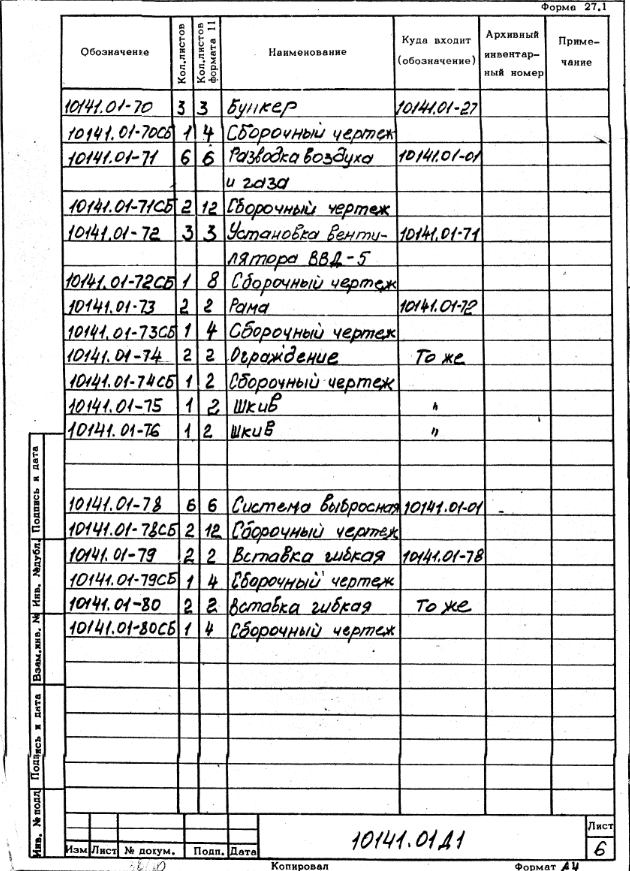 Форма 27.1
Обозначение Кол.листов Кол.листов формата 11 Наименование Куда входит (обозначение) Архивный инвентар-ный номер Приме-чание
10141.01-70 3 3 Бункер 10141.01-27
10141.01-70СБ 1 4 Сборочный чертеж
10141.01-71 6 6 Разводка воздуха 10141.01-01
и газа
10141.01-71СБ 2 12 Сборочный чертеж
10141.01-72 3 3 Установка венти- 10141.01-71
лятора ВВД-5
10141.01-72СБ 1 8 Сборочный чертеж
10141.01-73 2 2 Рама 10141.01-72
10141.01-73СБ 1 4 Сборочный чертеж
10141.01-74 2 2 Ограждение То же
10141.01-74СБ 1 2 Сборочный чертеж
10141.01-75 1 2 Шкив "
10141.01-76 1 2 Шкив "
10141.01-78 6 6 Система выбросная 10141.01-01
10141.01-78СБ 2 12 Сборочный чертеж
10141.01-79 2 2 Вставка гибкая 10141.01-78
10141.01-79СБ 1 4 Сборочный чертеж
10141.01-80 2 2 Вставка гибкая То же
10141.01-80СБ 1 4 Сборочный чертеж
Инв. № подл Подпись и дата Взам.инв. № Инв. №дубл. Подпись и дата
10141.01Д1
Лист
6
Изм Лист № докум. Подп. Дата
Копировал Формат А4